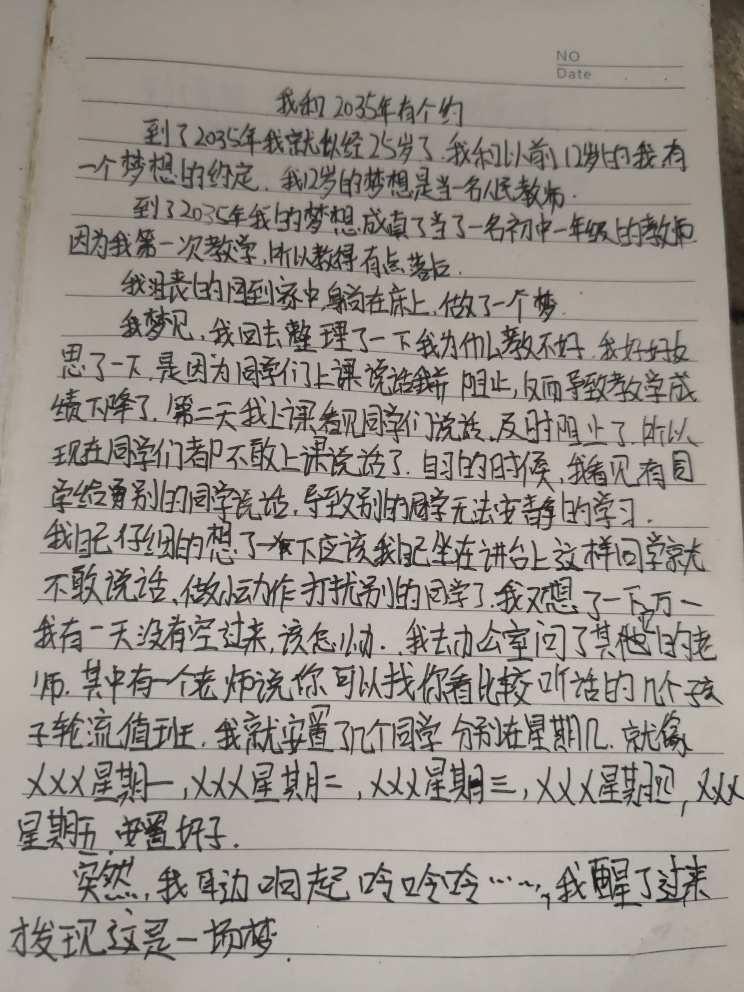 NO
Date
我和2035年有个约
到了2035年我就以经25岁了.我和以前12岁的我有
一个梦想的约定.我12岁的梦想是当一名人民教师.
到了2035年我的梦想成真了当了一名初中一年级的教师
因为我第一次教学,所以教得有点落后.
我沮丧的回到家中躺在床上,做了一个梦.
我梦见,我回去整理了一下我为什么教不好.我好好反
思了一下.是因为同学们上课说话我并阻止,反而导致教学成
绩下降了.第二天我上课看见同学们说话、及时阻止了.所以
现在同学们都不敢上课说话了.自习的时候,我看见有同
学给别的同学说话,导致别的同学无法安静的学习.
我自己仔细的想了一下应该我自己坐在讲台上这样同学就
不敢说话、做小动作打扰别的同学了.我又想了一下万一
我有一天没有空过来,该怎么办..我去办公室问了其他的老
师.其中有一个老师说你可以找你看比较听话的几个孩
子轮流值班.我就安置了几个同学分别在星期几.就像
XXX星期一,XXX星期二,XXX星期三,XXX星期四,XXX
星期五.安置好了.
突然,我耳边响起呤呤呤……,我醒了过来
发现这是一场梦.